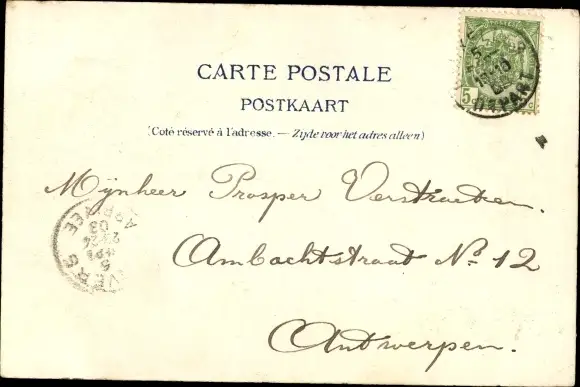 CARTE POSTALE
POSTKAART
(Coté réservé à l'adresse. — Zijde voor het adres alleen)
Mijnheer Prosper Verstraeten.
Ambachtstraat No. 12
Antwerpen.
DÉPART
ARRIVÉE
03
5